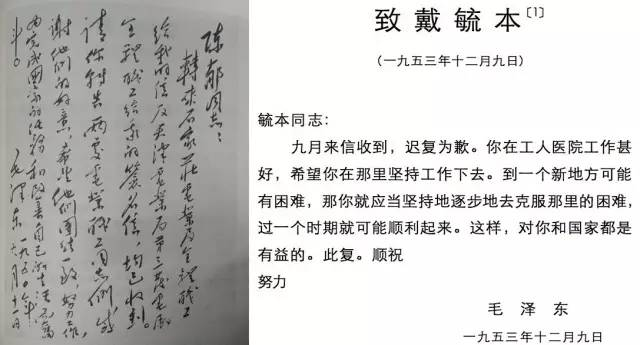 陈郁同志：
转来石家庄电业局全体职工
给我的信及天津电业局第三发电厂
全体职工给我的签名信，均已收到。
请你转告两处电业职工同志们，感
谢他们的好意，希望他们团结一致，努力工作，
为完成国家的任务和改善自己的生活而奋
斗。
毛泽东 一九五〇年
致戴毓本〔1〕
（一九五三年十二月九日）
毓本同志：
九月来信收到，迟复为歉。你在工人医院工作甚
好，希望你在那里坚持工作下去。到一个新地方可能
有困难，那你就应当坚持地逐步地去克服那里的困难，
过一个时期就可能顺利起来。这样，对你和国家都是
有益的。此复。顺祝
努力
毛泽东
一九五三年十二月九日